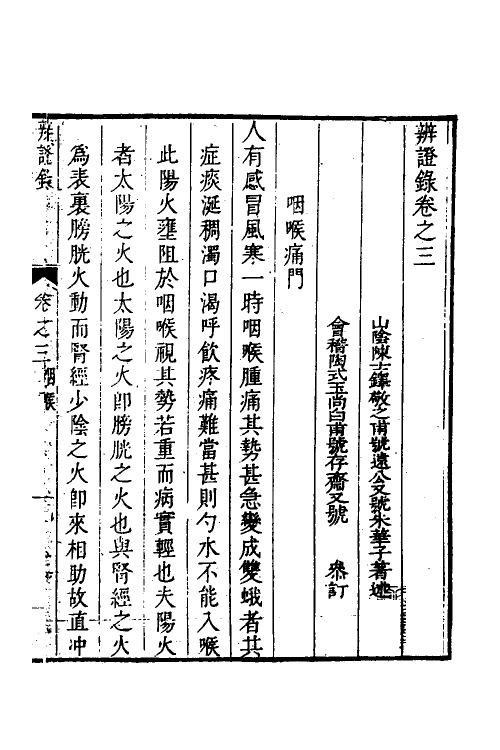 辨證錄卷之三
山陰陳士鐸敬之甫號遠公又號朱華子著述
會稽陶式玉尚白甫號存齋又號 叅訂
咽喉痛門
人有感冒風寒一時咽喉腫痛其勢甚急變成雙蛾者其
症痰涎稠濁口渴呼飲疼痛難當甚則勺水不能入喉
此陽火壅阻於咽喉視其勢若重而病實輕也夫陽火
者太陽之火也太陽之火卽膀胱之火也與腎經之火
爲表裏膀胱火動而腎經少陰之火卽來相助故直冲
辨證錄 卷之三 咽喉